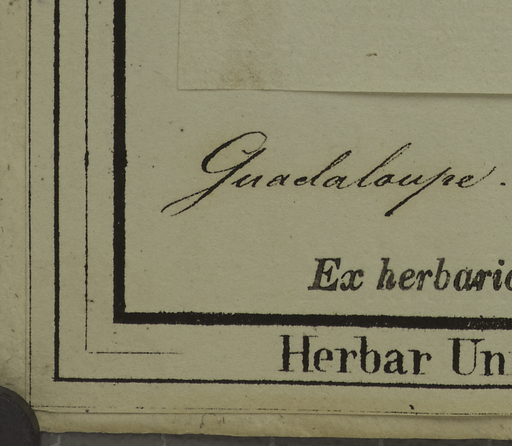 Guadaloupe.
Ex herbario
Herbar Uni